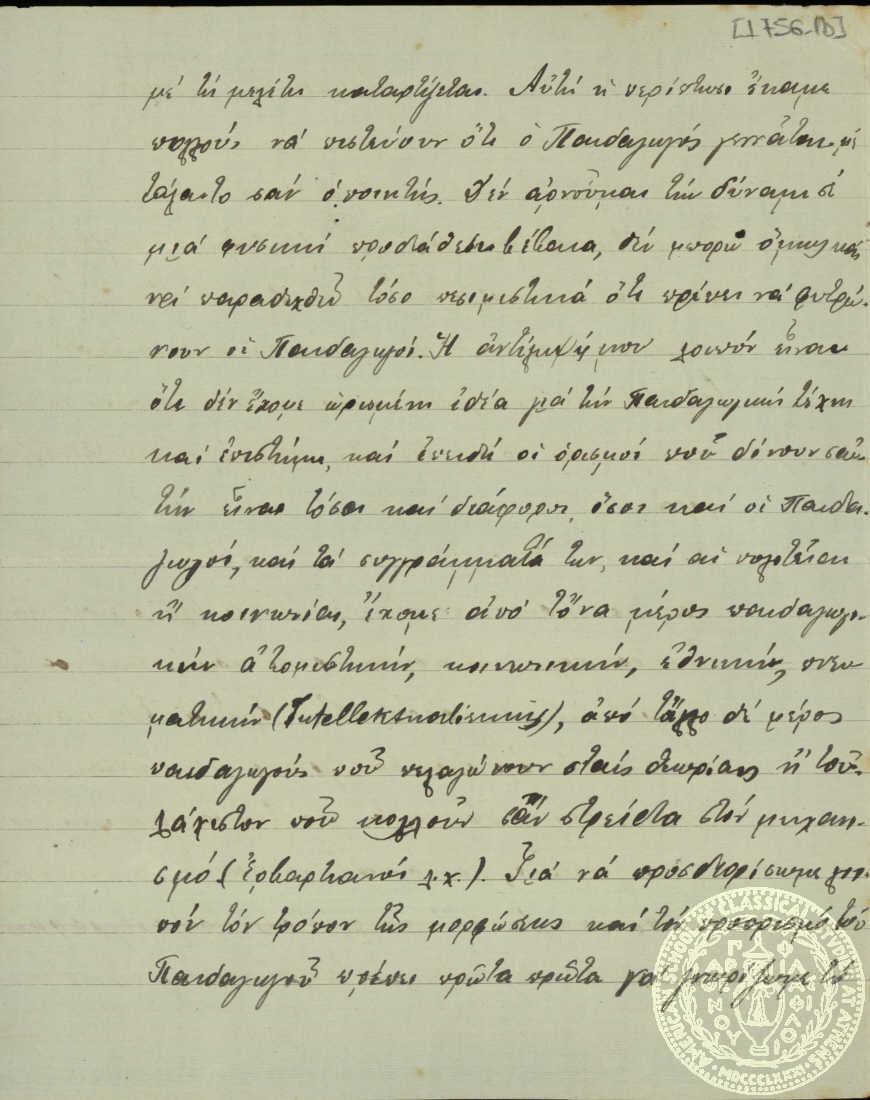 [1756-Π]
μέ τή μελέτη καταρτίζεται. Αὐτή ἡ περίστασι ἔκαμε
πολλούς νά πιστεύουν ὅτι ὁ Παιδαγωγός γεννᾶται μέ
τάλαντο σάν ὁ ποιητής. Δέν ἀρνοῦμαι τήν δύναμι σέ
μιά φυσική προδιάθεσι βέβαια, δέν μπορῶ ὅμως καί
νά παραδεχθῶ τόσο πεσιμιστικά ὅτι πρέπει νά φυτρώ-
νουν οἱ Παιδαγωγοί. Ἡ ἀντίληψί μου λοιπόν εἶναι
ὅτι δέν ἔχομε ὡρισμένη ἰδέα γιά τήν Παιδαγωγική τέχνη
καί ἐπιστήμη, καί ἐπειδή οἱ ὁρισμοί πού δίνουν σαὐ
τήν εἶναι τόσοι καί διάφοροι, ὅσοι καί οἱ Παιδα-
γωγοί, καί τά συγγράμματά των, καί αἱ πολιτεῖαι
ἤ κοινωνίαι, ἔχομε ἀπό τὄνα μέρος παιδαγωγι-
κήν ἀτομιστικήν, κοινωνικήν, ἐθνικήν, πνευ
ματικήν (Intellektualismus), ἀπό τἄλλο δέ μέρος
παιδαγωγούς πού πελαγώνουν σταίς θεωρίαις ἤ τοὐ-
λάχιστον πού κολλοῦν σάν στρείδια στόν μηχανι-
σμό (Ἑρβαρτιανοί π.χ.). Γιά νά προσδιορίσωμε λοι-
πόν τόν τρόπον τῆς μορφώσεως καί τόν προορισμό τοῦ
Παιδαγωγοῦ πρέπει πρῶτα πρῶτα νά γνωρίζωμε τί
AMERICAN SCHOOL OF CLASSICAL STUDIES AT ATHENS
MDCCCLXXXI